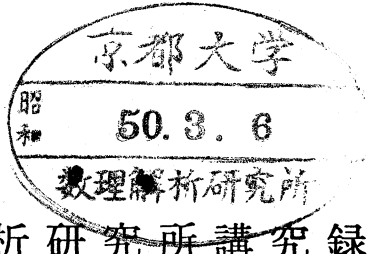 京都大学
昭和
50. 3. 6
数理解析研究所
析研究所講究録